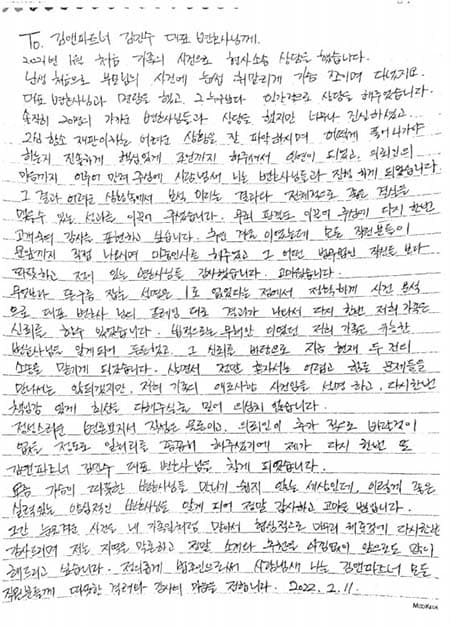 To. 김앤파트너 김민수 대표 변호사님께.
2021년 1월 처음 가족의 사건으로 형사소송 상담을 했습니다.
난생 처음으로 부모님의 사건에 가슴 조이며
대표 변호사님과 면담을 했고 그 누구보다 인간적으로 상담을 해주셨습니다.
솔직히 20명의 가까운 변호사님들과 상담을 했지만 너무나 진실하셨고...
그입장소 재판이라는 어려운 상황을 잘 파악하시며 어떻게 풀어나가야
하는지 진솔하게 핵심있게 표현까지 해주셔서 인연이 되었고, 의뢰인의
마음까지 만져 주심에 사람냄새 나는 변호사님들과 진행하게 되었습니다
그 결과 어려운 상황속에서 보석 이라는 결과와 전체적으로 좋은 결과를
얻을수 있는 성과를 이루어 주셨습니다. 무죄 판결도 이루어 주심에 다시 한번
고개숙여 감사를 표현하고 싶습니다. 모든 직원분들이
문앞까지 직접 나오시며 마중인사를 해주었고 그 어떤 법무법인 직원들 보다
따뜻하고 정이 있는 변호사님들 감사했습니다. 고마웠습니다.
뜬구름 잡는 설명은 1도 없었다는 점에서 정확하게 사건 분석
으로 대표 변호사 님의 프레임 대로 결과가 나타나서 다시 한번 저희 가족은
신뢰를 할수 있었습니다. 법적으로는 무뢰한 이었던 저희 가족은 유능한
변호사님을 알게되어 든든했고, 그 신뢰를 바탕으로 지금 현재 두 건의
소송을 맡기게 되었습니다. 살면서 정말 혼자서는 어렵고 힘든 문제들을
만나서는 안되겠지만, 저희 가족의 애로사항 사건임을 설명 하고, 다시한번
책임감 있게 최선을 다해주심을 믿어 의심치 않습니다.
정성스러운 변호부터 직원은 물론이고, 의뢰인이 추가 적으로 바랄것이
없을 정도로 일처리를 꼼꼼히 해주셨기에 제가 다시 한번 또
김앤파트너 김민수 대표 변호사님을 찾게 되었습니다.
요즘 가슴이 따뜻한 변호사님을 만나기 쉽지 않은 세상인데, 이렇게 좋은
실력있는 양심적인 변호사님을 알게 되어 정말 감사하고 고마울 뿐입니다.
그간 눈물겨운 사건을 내 가족일처럼 맡아서 협상적으로 마무리 해주심에 다시한번
감사드리며 저는 지인을 막론하고 정말 소개와 추천을 아낌없이 앞으로도 많이
해드리고 싶습니다. 정의롭게 법조인으로써 사람냄새 나는 김앤파트너 모든
직원분들께 따뜻한 격려와 감사의 마음을 전합니다. 2022. 2. 11.
MOOKEUK